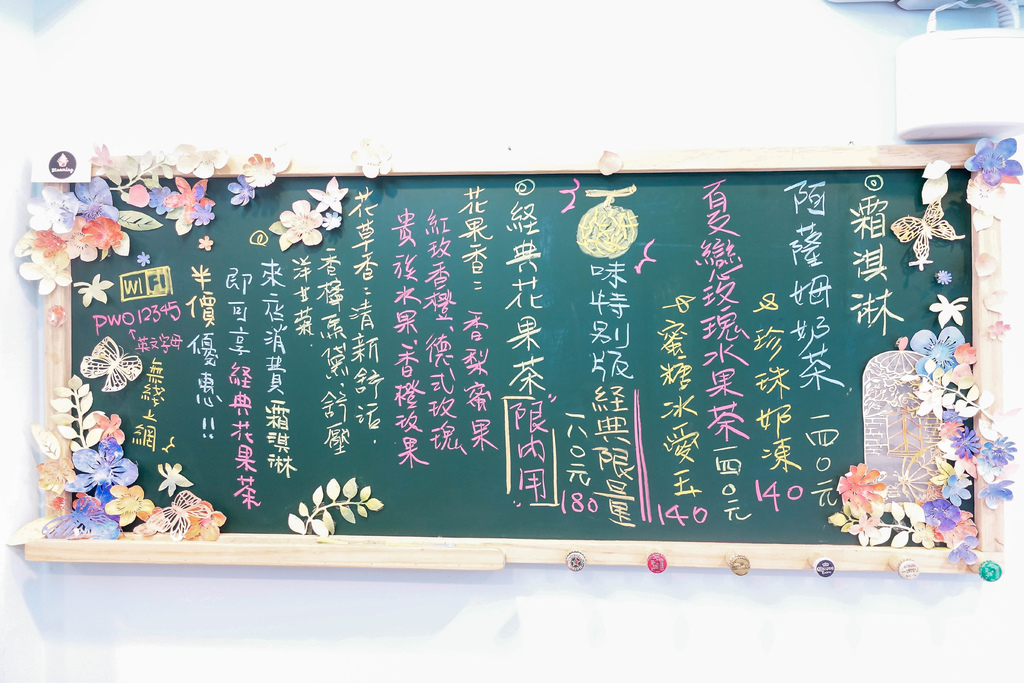 ◎霜淇淋
阿薩姆奶茶 一四〇元
&珍珠奶凍 140
夏戀玫瑰水果茶 一四〇元
&蜜糖冰愛玉 140
味特別版 経典限量
一八〇元
180
◎経典花果茶 限內用
花果香：香梨蜜果
紅玫香橙、德式玫瑰
貴族水果、香橙玫果
花草香：清新舒活、
香檸黑黛、舒壓
洋甘菊.
◎來店消費霜淇淋
即可享経典花果茶
半價優惠!!
WIFI
PWO12345
↑英文字母
無線上網
Blooming